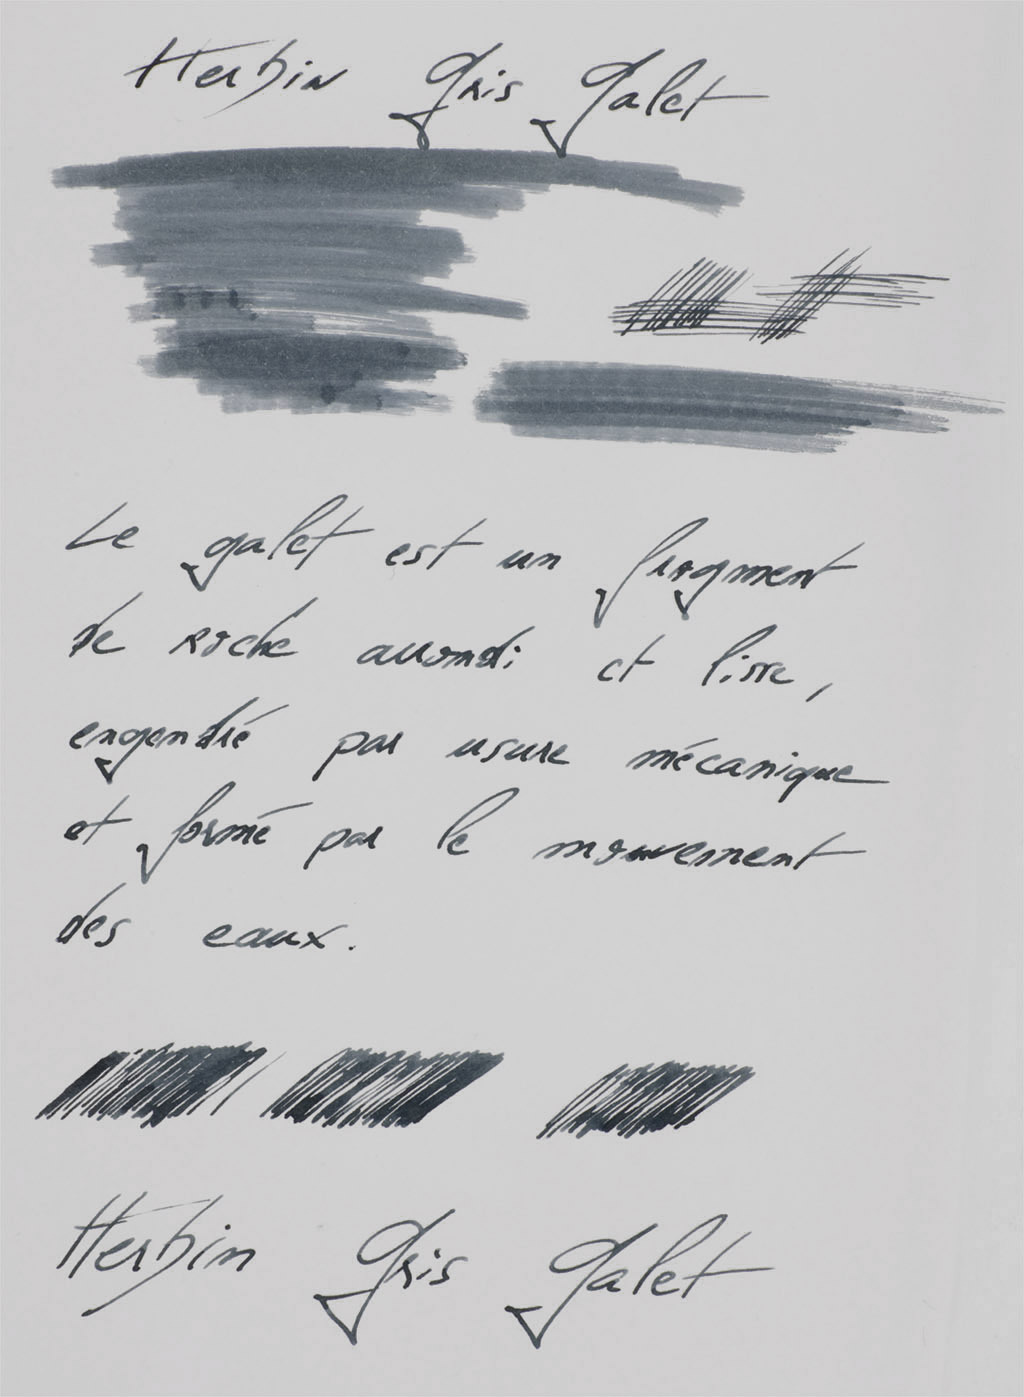 Herbin Gris Galet
Le galet est un fragment
de roche arrondi et lisse,
engendré par usure mécanique
et formé par le mouvement
des eaux.
Herbin Gris Galet